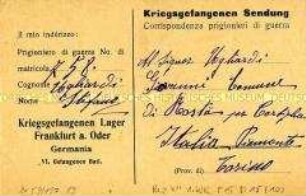 Kriegsgefangenen Sendung
Corrispondenza prigionieri di guerra
Il mio indirizzo:
Prigioniero di guerra No. di
matricola 758
Cognome Ugliardi
Nome Stefano
Kriegsgefangenen Lager
Frankfurt a. Oder
Germania
VI. Gefangenen Batl.
Al Signor Ugliardi
Giovanni Comune
di Rosta per
Italia Piemonte
(Prov. di) Torino